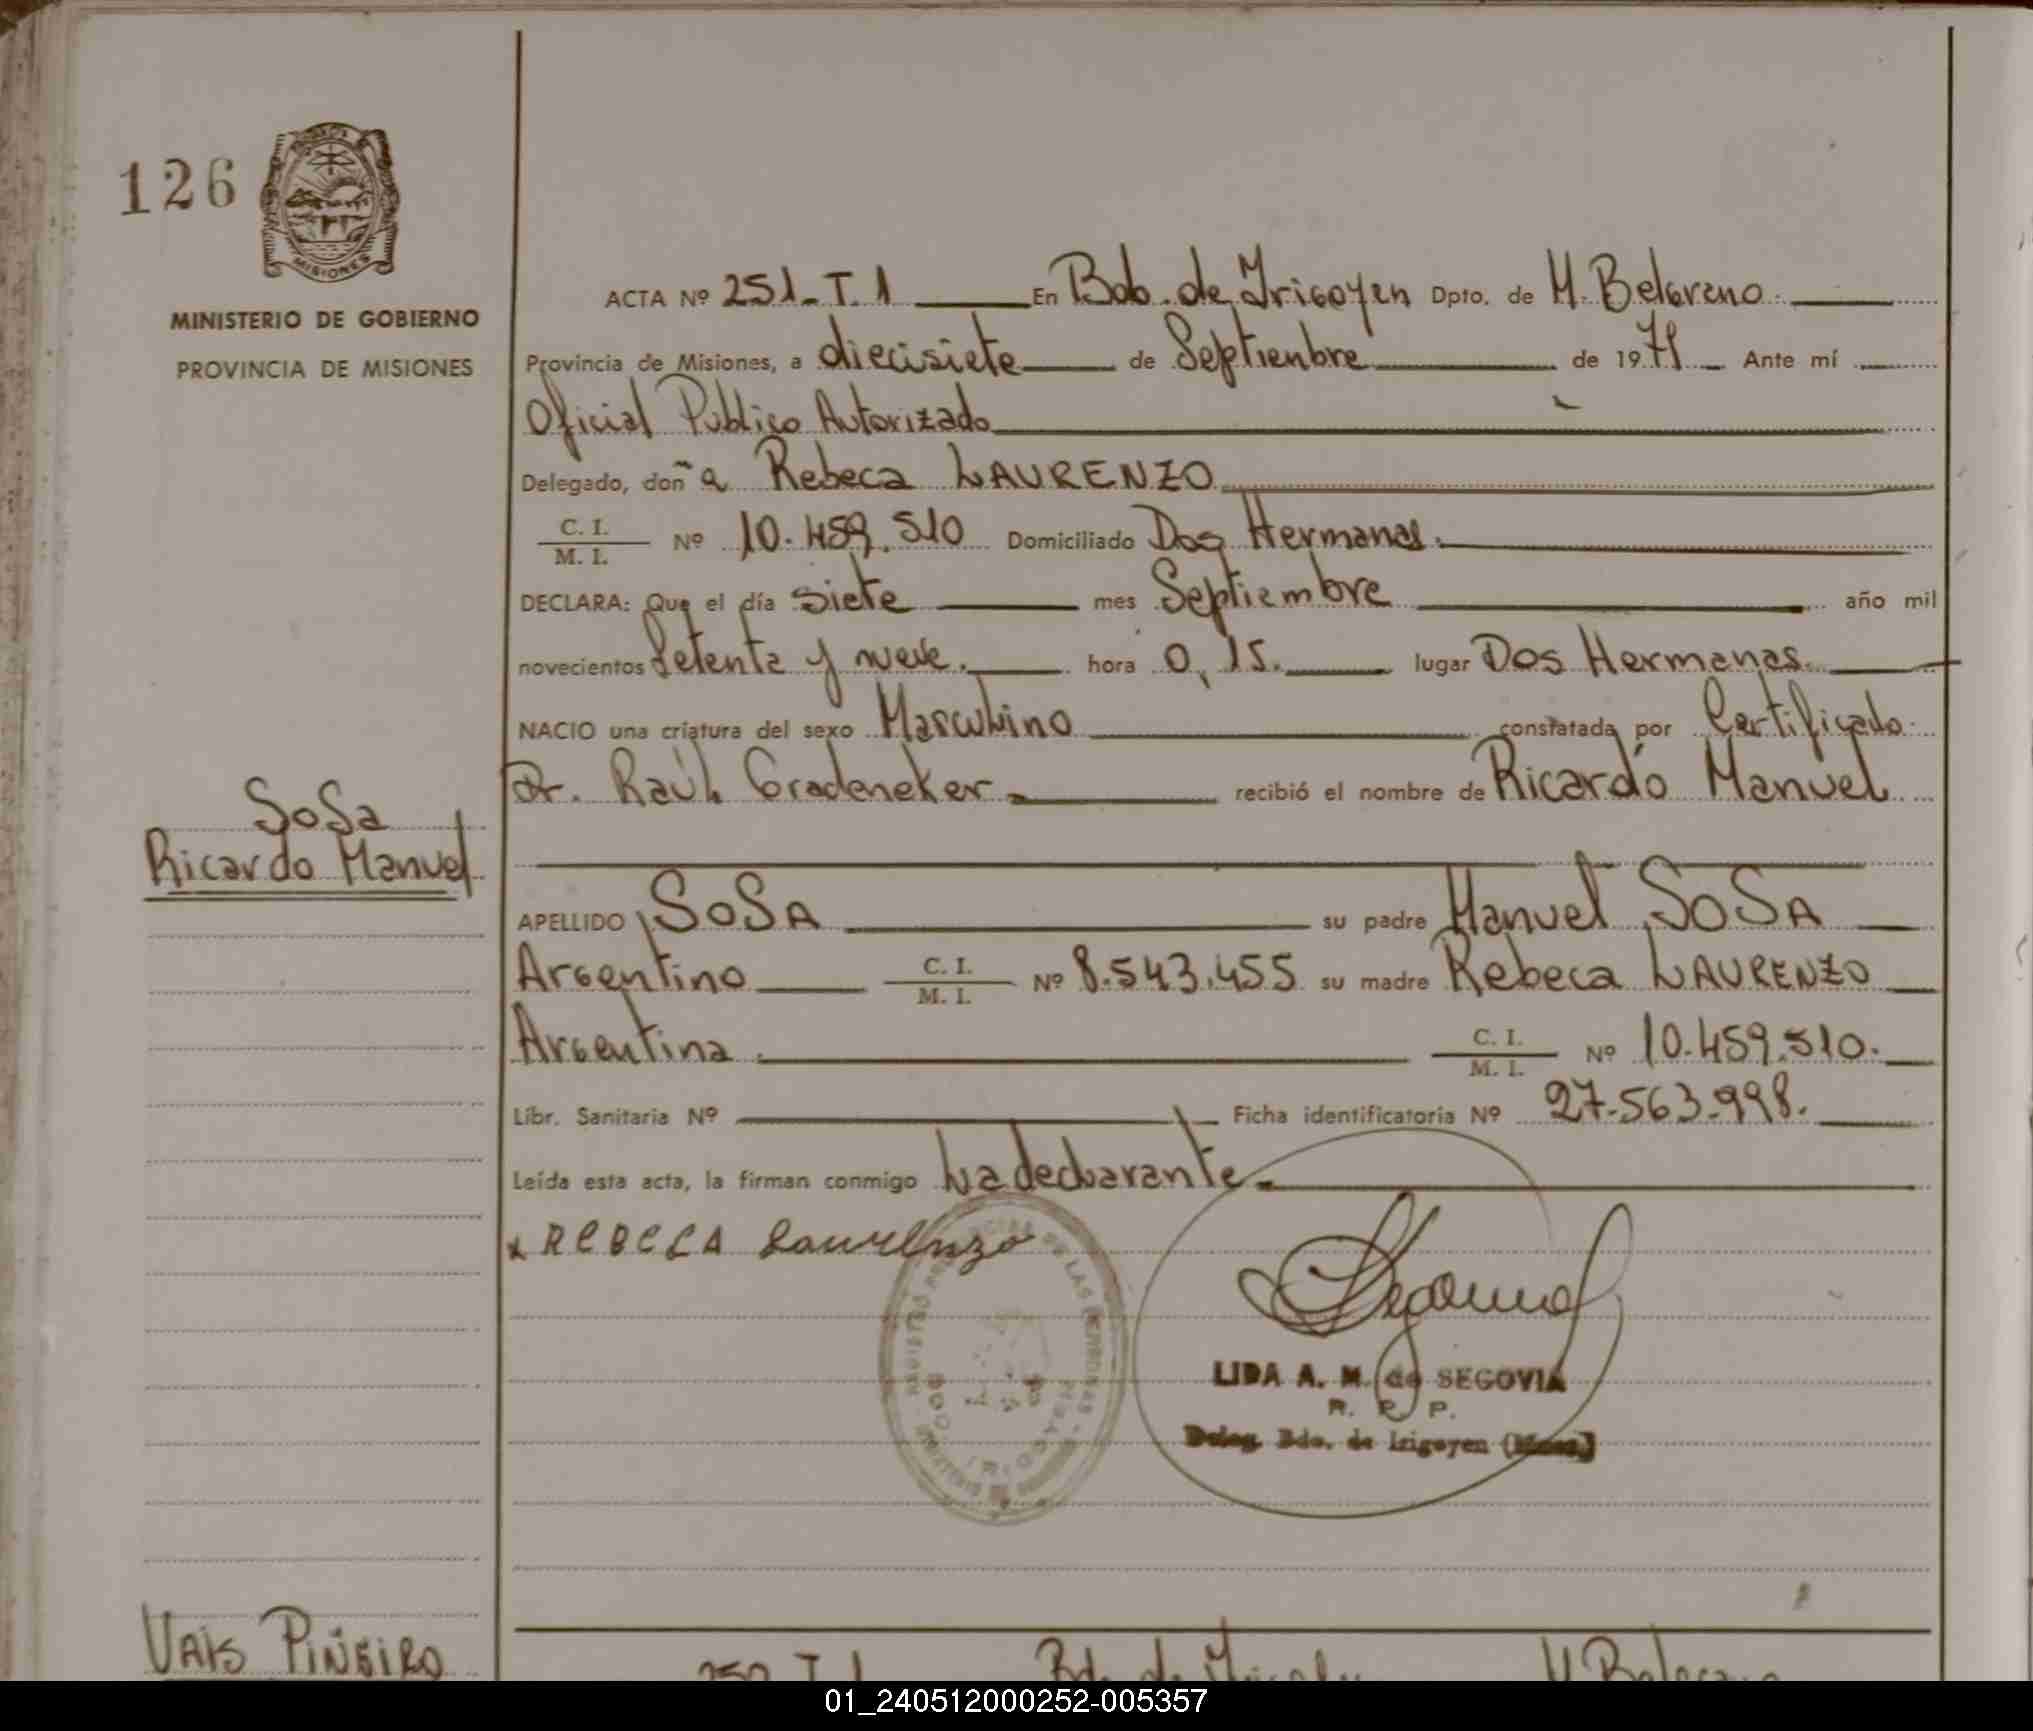 126
MISIONES
MINISTERIO DE GOBIERNO
PROVINCIA DE MISIONES
ACTA Nº 251-T.1 En Bdo. de Irigoyen Dpto. de M. Belgrano.
Provincia de Misiones, a diecisiete de Septienbre de 1979 Ante mí
Oficial Publico Autorizado
Delegado, doña Rebeca LAURENZO
C. I.
M. I. Nº 10.459.510 Domiciliado Dos Hermanas.
DECLARA: Que el día siete mes Septiembre año mil
novecientos Setenta y nueve. hora 0,15. lugar Dos Hermanas.
NACIO una criatura del sexo Masculino constatada por Certificado
Dr. Raúl Gradeneker recibió el nombre de Ricardo Manuel
SoSa
Ricardo Manuel
APELLIDO SOSA su padre Manuel SOSA
Argentino C. I. M. I. Nº 8.543.455 su madre Rebeca LAURENZO
Argentina. C. I. M. I. Nº 10.459.510.
Libr. Sanitaria Nº Ficha identificatoria Nº 27.563.998.
Leída esta acta, la firman conmigo La declarante
x REBECA Laurenzo
LIDA A. M. de SEGOVIA
R. P. P.
Deleg. Bdo. de Irigoyen (Mnes)
DE LAS PERSONAS
VAIS PIÑEIRO
252 T. 1 Bdo. de Irigoyen M. Belgrano
01_240512000252-005357